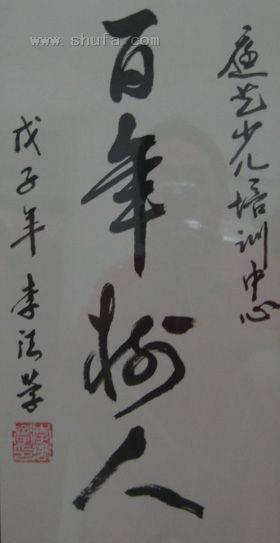 www.shufa.com
艺少儿培训中心
百年树人
戊子年 李法